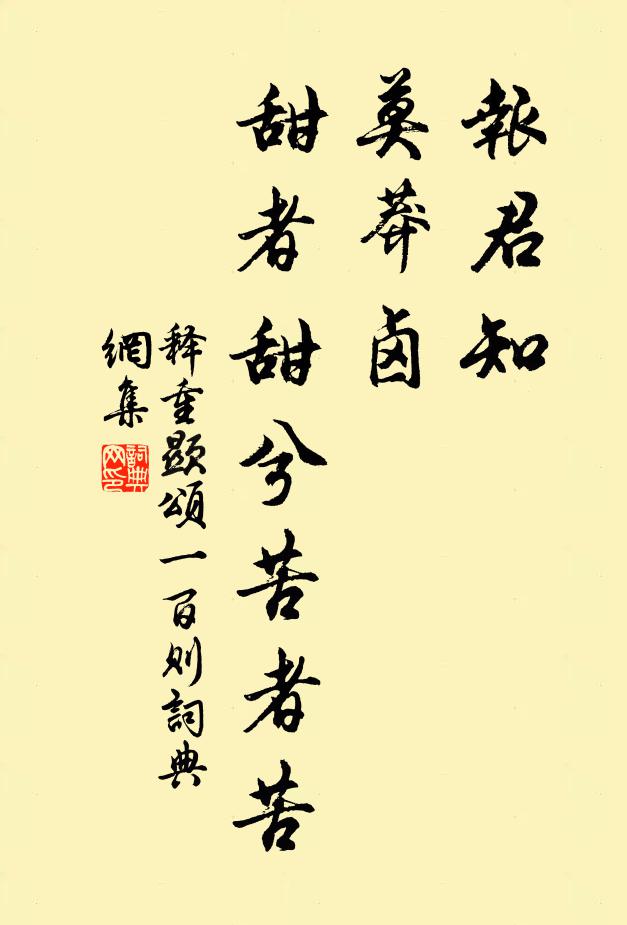 報君知
莫莽卤
甜者甜兮苦者苦
释重顯頌一百则詞典
網集
詞典
网印